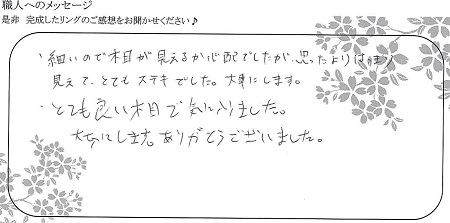 職人へのメッセージ
是非 完成したリングのご感想をお聞かせください♪
・細いので木目が見えるか心配でしたが、思ったよりはっきり
見えて、とてもステキでした。大事にします。
・とても良い木目で気に入りました。
大切にします。ありがとうございました。